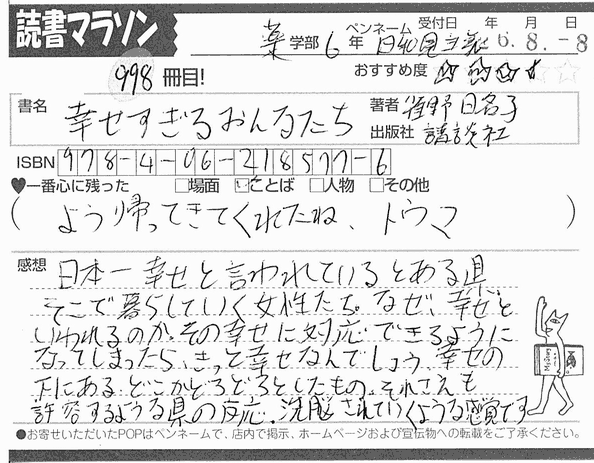 読書マラソン
薬 学部 6 年 ペンネーム 日和見主義 受付日 年 月 日 6.8.-8
998 冊目!
おすすめ度 ☆☆☆☆☆
書名 幸せすぎるおんなたち
著者 雀野 日名子
出版社 講談社
ISBN 978-4-06-218577-6
♥一番心に残った □場面 ☑ことば □人物 □その他
( よう帰ってきてくれたね、トウマ )
感想 日本一幸せと言われているとある県
そこで暮らしていく女性たち。なぜ、幸せと
いわれるのか。その幸せに対応できるように
なってしまったら、きっと幸せなんでしょう。幸せの
下にあるどこかどろどろとしたもの。それさえも
許容するような県の反応。洗脳されていくような感覚です
●お寄せいただいたPOPはペンネームで、店内で掲示、ホームページおよび宣伝物への転載をご了承ください。